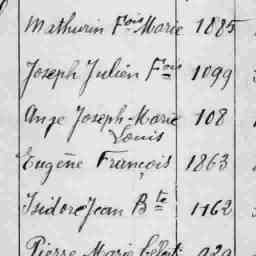 Mathurin Fois Marie 1885
Joseph Julien Fois 1099
Ange Joseph-Marie 108
Louis
Eugène François 1863
Isidore Jean Bte 1162
Pierre Marie 929